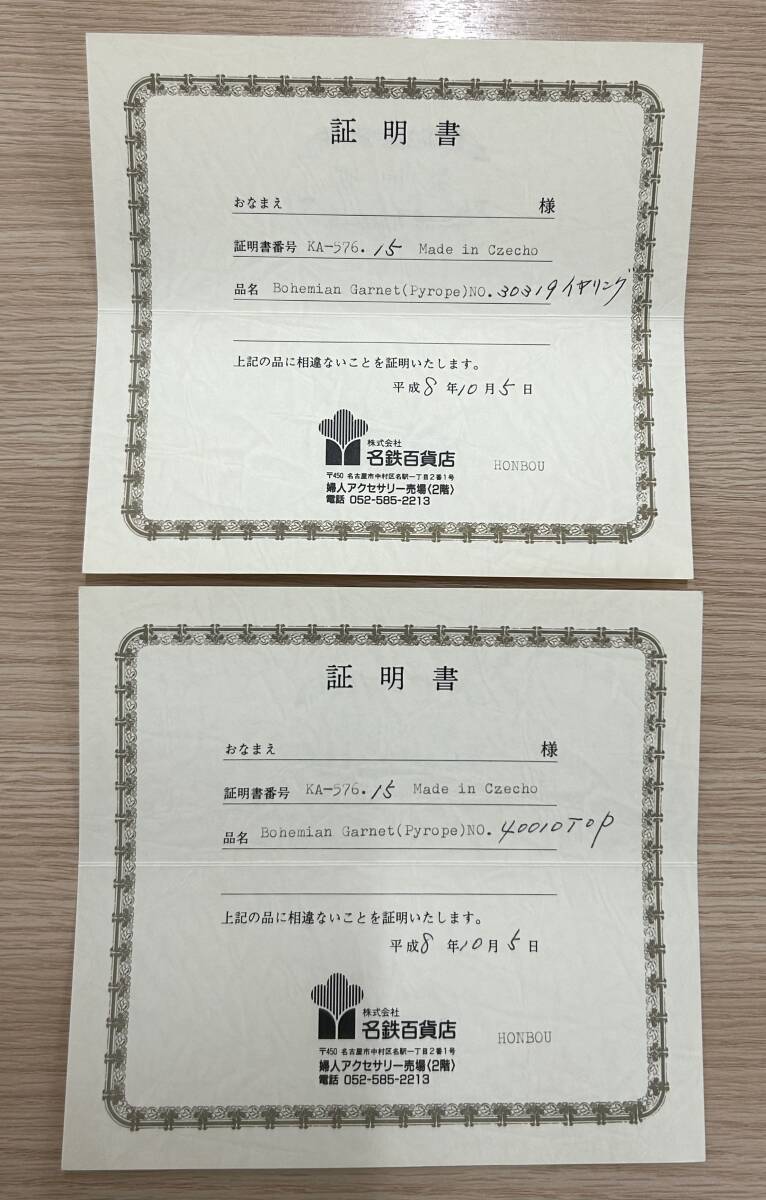 証明書
おなまえ 様
証明書番号 KA-576.15 Made in Czecho
品名 Bohemian Garnet(Pyrope)NO.30319イヤリング
上記の品に相違ないことを証明いたします。
平成8年10月5日
株式会社
名鉄百貨店
HONBOU
〒450 名古屋市中村区名駅一丁目2番1号
婦人アクセサリー売場〈2階〉
電話 052-585-2213
証明書
おなまえ 様
証明書番号 KA-576.15 Made in Czecho
品名 Bohemian Garnet(Pyrope)NO.40010Top
上記の品に相違ないことを証明いたします。
平成8年10月5日
株式会社
名鉄百貨店
HONBOU
〒450 名古屋市中村区名駅一丁目2番1号
婦人アクセサリー売場〈2階〉
電話 052-585-2213